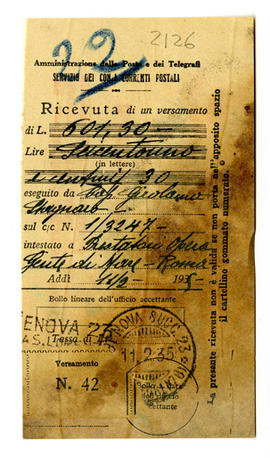 22
2126
Amministrazione delle Poste e dei Telegrafi
SERVIZIO DEI CONTI CORRENTI POSTALI
Ricevuta di un versamento
di L. 601,30
Lire Seicentouno
(in lettere)
e centesimi 30
eseguito da Cap. Girolamo
sul c/c N. 1/3247
intestato a
Gente di Mare - Roma
Addì 11/2 1935
Bollo lineare dell'ufficio accettante
GENOVA 23
Tassa di L.
GENOVA SUCC. 23
11.2.35
Versamento
N. 42
Bollo a data
dell'ufficio
accettante
La presente ricevuta non è valida se non porta nell'apposito spazio
il cartellino gommato numerato.